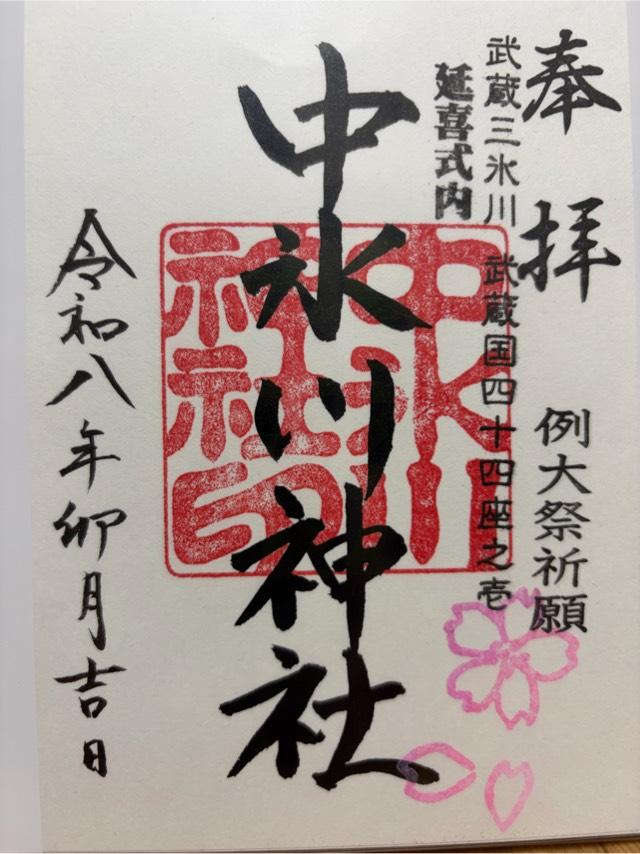 奉拝
例大祭祈願
武蔵三氷川 武蔵国四十四座之壱
延喜式内
中氷川神社
中氷川神社印
令和八年卯月吉日